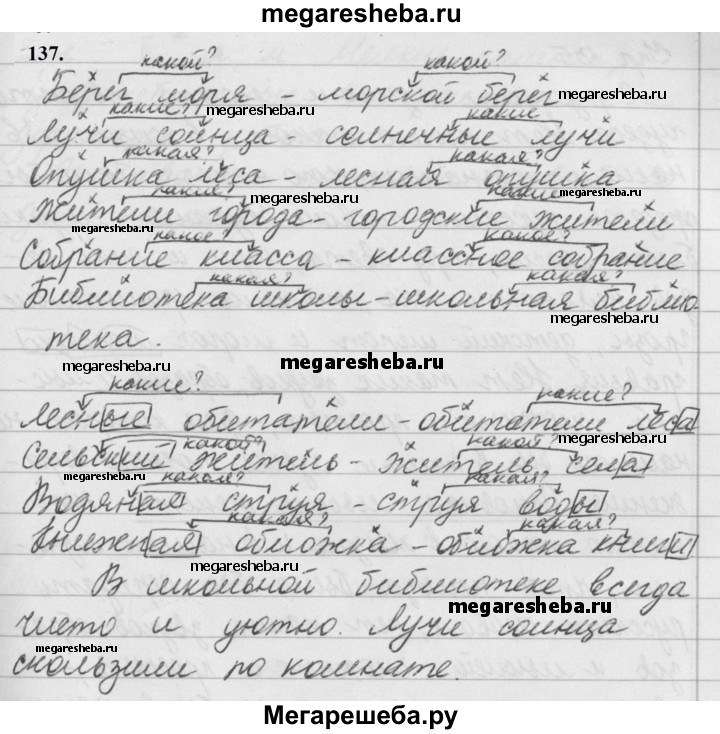 megaresheba.ru
137.
какой? какой?
Берег моря – морской берег
megaresheba.ru
какие? megaresheba.ru какие
Лучи солнца – солнечные лучи
какая? какая?
Опушка леса – лесная опушка
какие? megaresheba.ru какие
Жители города – городские жители
megaresheba.ru какое? какое? megaresheba.ru
Собрание класса – классное собрание
какая? какая?
Библиотека школы – школьная библио-
тека. megaresheba.ru
megaresheba.ru megaresheba.ru
какие? какие?
Лесные обитатели – обитатели леса
megaresheba.ru
какой? какой?
Сельский житель – житель села
megaresheba.ru какая? какая?
Водяная струя – струя воды
какая? какая?
Книжная обложка – обложка книги
В школьной библиотеке всегда
megaresheba.ru
чисто и уютно. Лучи солнца
megaresheba.ru
скользили по комнате.
megaresheba.ru
Мегарешеба.ру